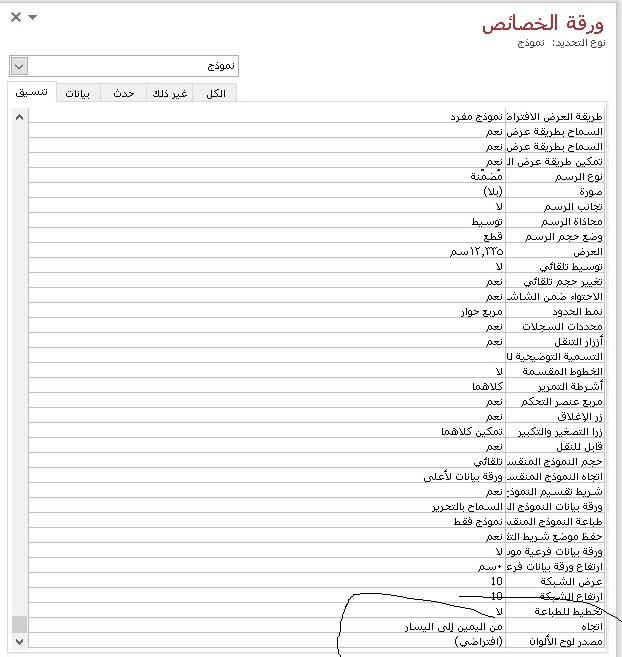 ورقة الخصائص
نوع التحديد: نموذج
نموذج
تنسيق بيانات حدث غير ذلك الكل
طريقة العرض الافتراض نموذج مفرد
السماح بطريقة عرض نعم
السماح بطريقة عرض نعم
تمكين طريقة عرض ال نعم
نوع الرسم مُضمّنة
صورة (بلا)
تجانب الرسم لا
محاذاة الرسم توسيط
وضع حجم الرسم قطع
العرض ١٢,٢٢٥سم
توسيط تلقائي لا
تغيير حجم تلقائي نعم
الاحتواء ضمن الشاش نعم
نمط الحدود مربع حوار
محددات السجلات نعم
أزرار التنقل نعم
التسمية التوضيحية لل
الخطوط المقسمة لا
أشرطة التمرير كلاهما
مربع عنصر التحكم نعم
زر الإغلاق نعم
زرا التصغير والتكبير تمكين كلاهما
قابل للنقل نعم
حجم النموذج المنقس تلقائي
اتجاه النموذج المنقس ورقة بيانات لأعلى
شريط تقسيم النموذج نعم
ورقة بيانات النموذج ال السماح بالتحرير
طباعة النموذج المنقس نموذج فقط
حفظ موضع شريط التق نعم
ورقة بيانات فرعية مو لا
ارتفاع ورقة بيانات فرع ٠سم
عرض الشبكة 10
ارتفاع الشبكة 10
تخطيط للطباعة لا
اتجاه من اليمين إلى اليسار
مصدر لوح الألوان (افتراضي)